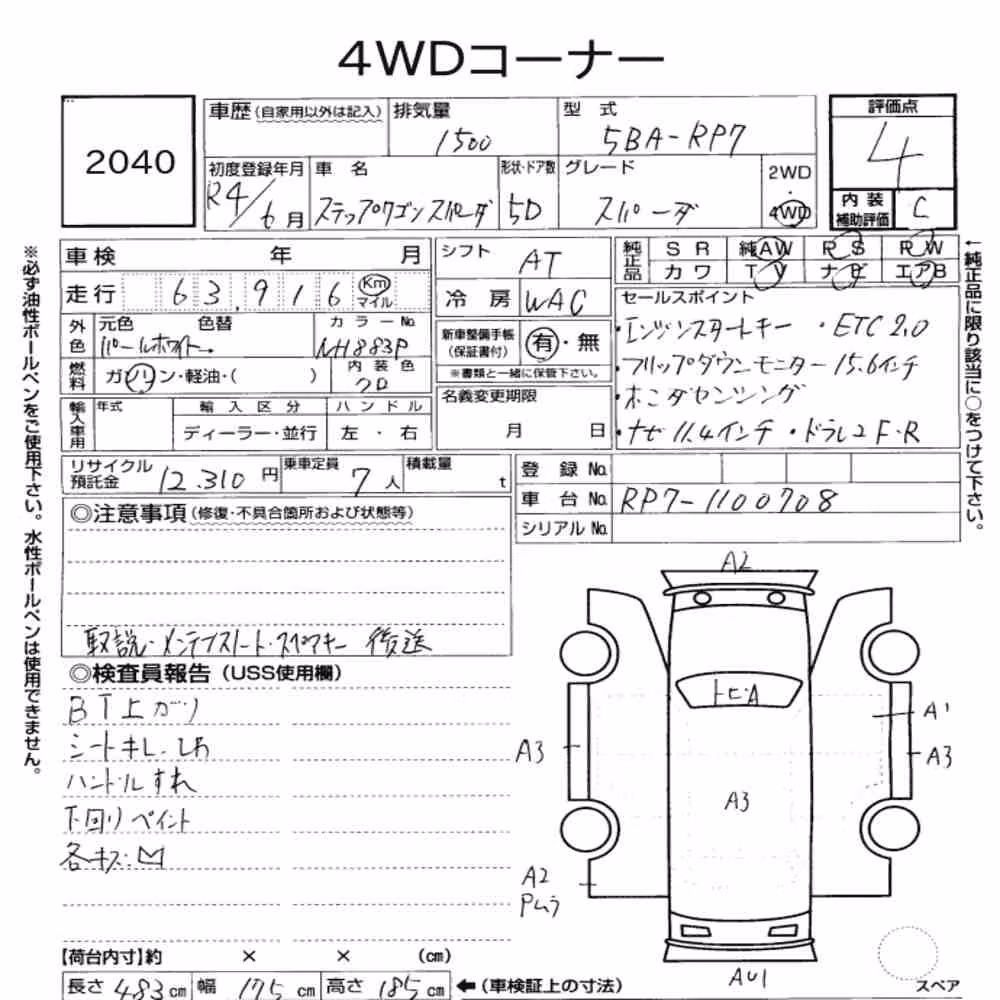 4WDコーナー
2040
車歴(自家用以外は記入) 排気量 型式 評価点
1500 5BA-RP7 4
初度登録年月 車名 形状・ドア数 グレード 2WD・4WD 内装補助評価 C
R4/6月 ステップワゴンスパーダ 5D スパーダ
車検 年 月 シフト AT 純正品 SR 純AW PS PW
カワ TV ナビ エアB
走行 63,916 Km マイル 冷房 WAC セールスポイント
外色 元色 色替 カラーNo. 新車整備手帳(保証書付) 有・無
パールホワイト NH883P ※書類と一緒に保管下さい。
・エンジンスタートキー ・ETC2.0
・フリップダウンモニター15.6インチ
・ホンダセンシング
・ナビ11.4インチ ・ドラレコF・R
燃料 ガソリン・軽油・( ) 内装色
名義変更期限
月 日
輸入車用 年式 輸入区分 ハンドル
ディーラー・並行 左・右
リサイクル預託金 12,310円 乗車定員 7人 積載量 t
登録No.
車台No. RP7-1100708
シリアルNo.
◎注意事項(修復・不具合箇所および状態等)
取説・メンテナンスノート・スペアキー 後送
◎検査員報告(USS使用欄)
BT上ガリ
シートキレ.しわ
ハンドルすれ
下回りペイント
各キズ:凹
A2
トビA
A1
A3
A3
A3
A2
Pムラ
AU1
スペア
【荷台内寸】約 × × (cm)
長さ 483cm 幅 175cm 高さ 185cm ←(車検証上の寸法)
※必ず油性ボールペンをご使用下さい。水性ボールペンは使用できません。
←純正品に限り該当に○をつけて下さい。